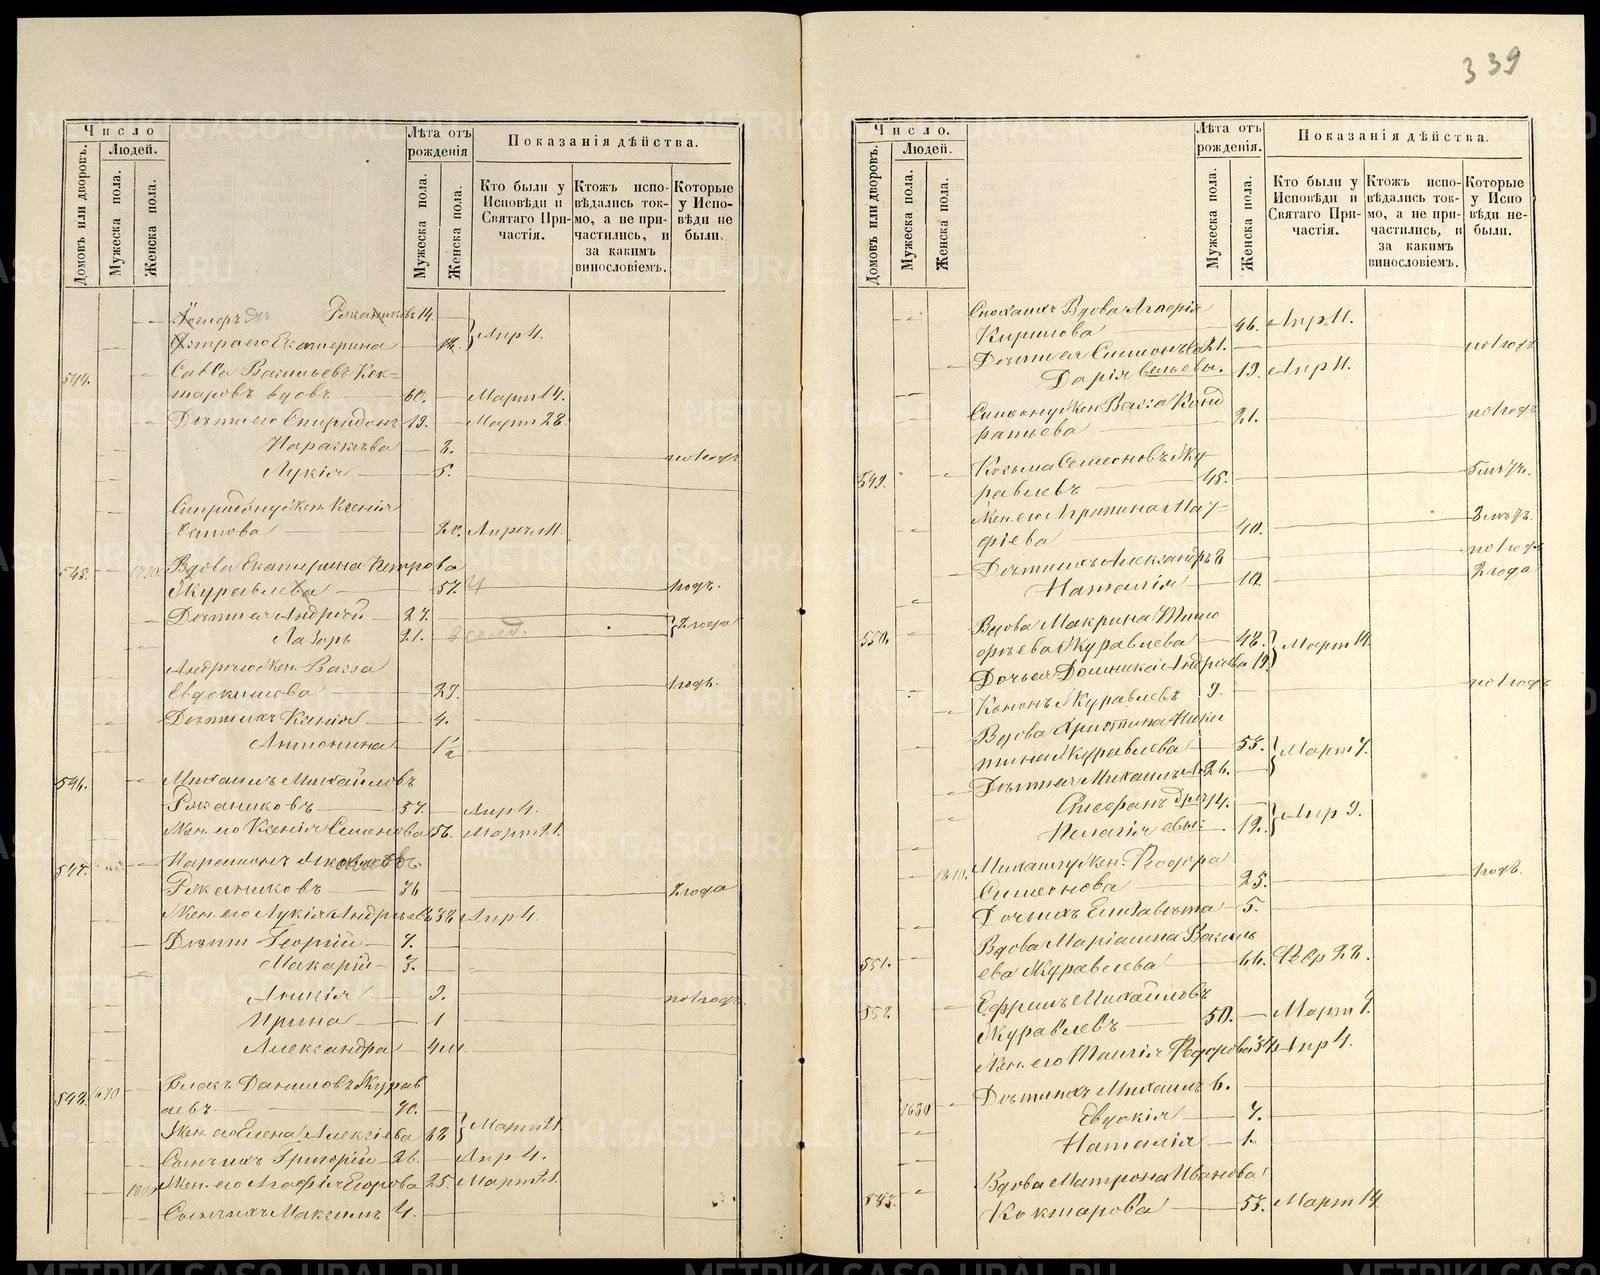 339
Число
Людей.
Домовъ или дворовъ.
Мужеска пола.
Женска пола.
Лѣта отъ рожденія
Мужеска пола.
Женска пола.
Показанія дѣйства.
Кто были у Исповѣди и Святаго Причастія.
Ктожъ исповѣдались токмо, а не причастились, и за какимъ винословіемъ.
Которые у Исповѣди не были.
Ряжаниковъ 14.
Сестра его Екатерина Апр 4.
544. Савва Васильевъ Кок=
таровъ вдовъ 60. Март 14.
Дѣти его Спиридонъ 19. Март 28
Параскева 8.
Лукія 5.
Спиридону Жен. Ксенія
Осипова 20. Апрел. 11.
545. Вдова Екатерина Петрова
Журавлева 57. 1 годъ.
Дѣти ея Андрей 27.
Лазорь 21. 2 года
Андрею Жен. Васса
Евдокимова 29. 1 годъ.
Дѣти их Ксенія 4.
Антонина 1 1/2
546. Михаилъ Михайловъ
Ряжаниковъ 57. Апр 4.
Жен. его Ксенія Семенова 56. Март 21.
547. Парамонъ
Ряжаниковъ 36 2 года
Жен. его Лукія Андреева 38 Апр 4.
Дѣти Георгій 7.
Макарій 3.
Анисія 9.
Ирина 1
Александра 4 м.
548. Даниловъ Журав
левъ 70.
Жен. его Елена Алексіева 68 Март 21.
Сынъ ихъ Григорій 26. Апр 4.
Жен. его Агафія Егорова 25. Март 21.
Сынъ ихъ Максимъ 4.
Число.
Людей.
Домовъ или дворовъ.
Мужеска пола.
Женска пола.
Лѣта отъ рожденія.
Мужеска пола.
Женска пола.
Показанія дѣйства.
Кто были у Исповѣди и Святаго Причастія.
Ктожъ исповѣдались токмо, а не причастились, и за какимъ винословіемъ.
Которые у Исповѣди небыли.
Сноха ихъ Вдова
Кирилова 46. Апр 11.
Дѣти ея Симеонъ 21.
Дарія 19. Апр 11.
Симеону Жен. Васса Конд
ратьева 21.
549. Козьма Семеновъ Жу
равлевъ 45.
Жен. его Агрипина Ма
фіева 40.
Дѣти ихъ Александръ 8
Наталія 10 2 года
550. Вдова Макрина Тимо
фѣева Журавлева 48. Март 14.
Дочь ея Домника Андреева 19.
Кононъ Журавлевъ 9.
Вдова Христина Ники
тина Журавлева 53. Март 7.
Дѣти ея Михаилъ 26.
Стефанъ
Пелагія 19. Апр 9.
Михаилу Жен. Феодора
Симеонова 25. 1 годъ.
Дочь ихъ Елисавета 5.
551. Вдова Маріамна Василь
ева Журавлева 66. Февр 28.
552. Ефримъ Михайловъ
Журавлевъ 50. Март 7.
Жен. его Таисія Федорова 34 Апр 4.
Дѣти ихъ Михаилъ 6.
Евдокія 7.
Наталія 1.
553. Вдова Матрона Иванова
Коктарова 53. Март 14